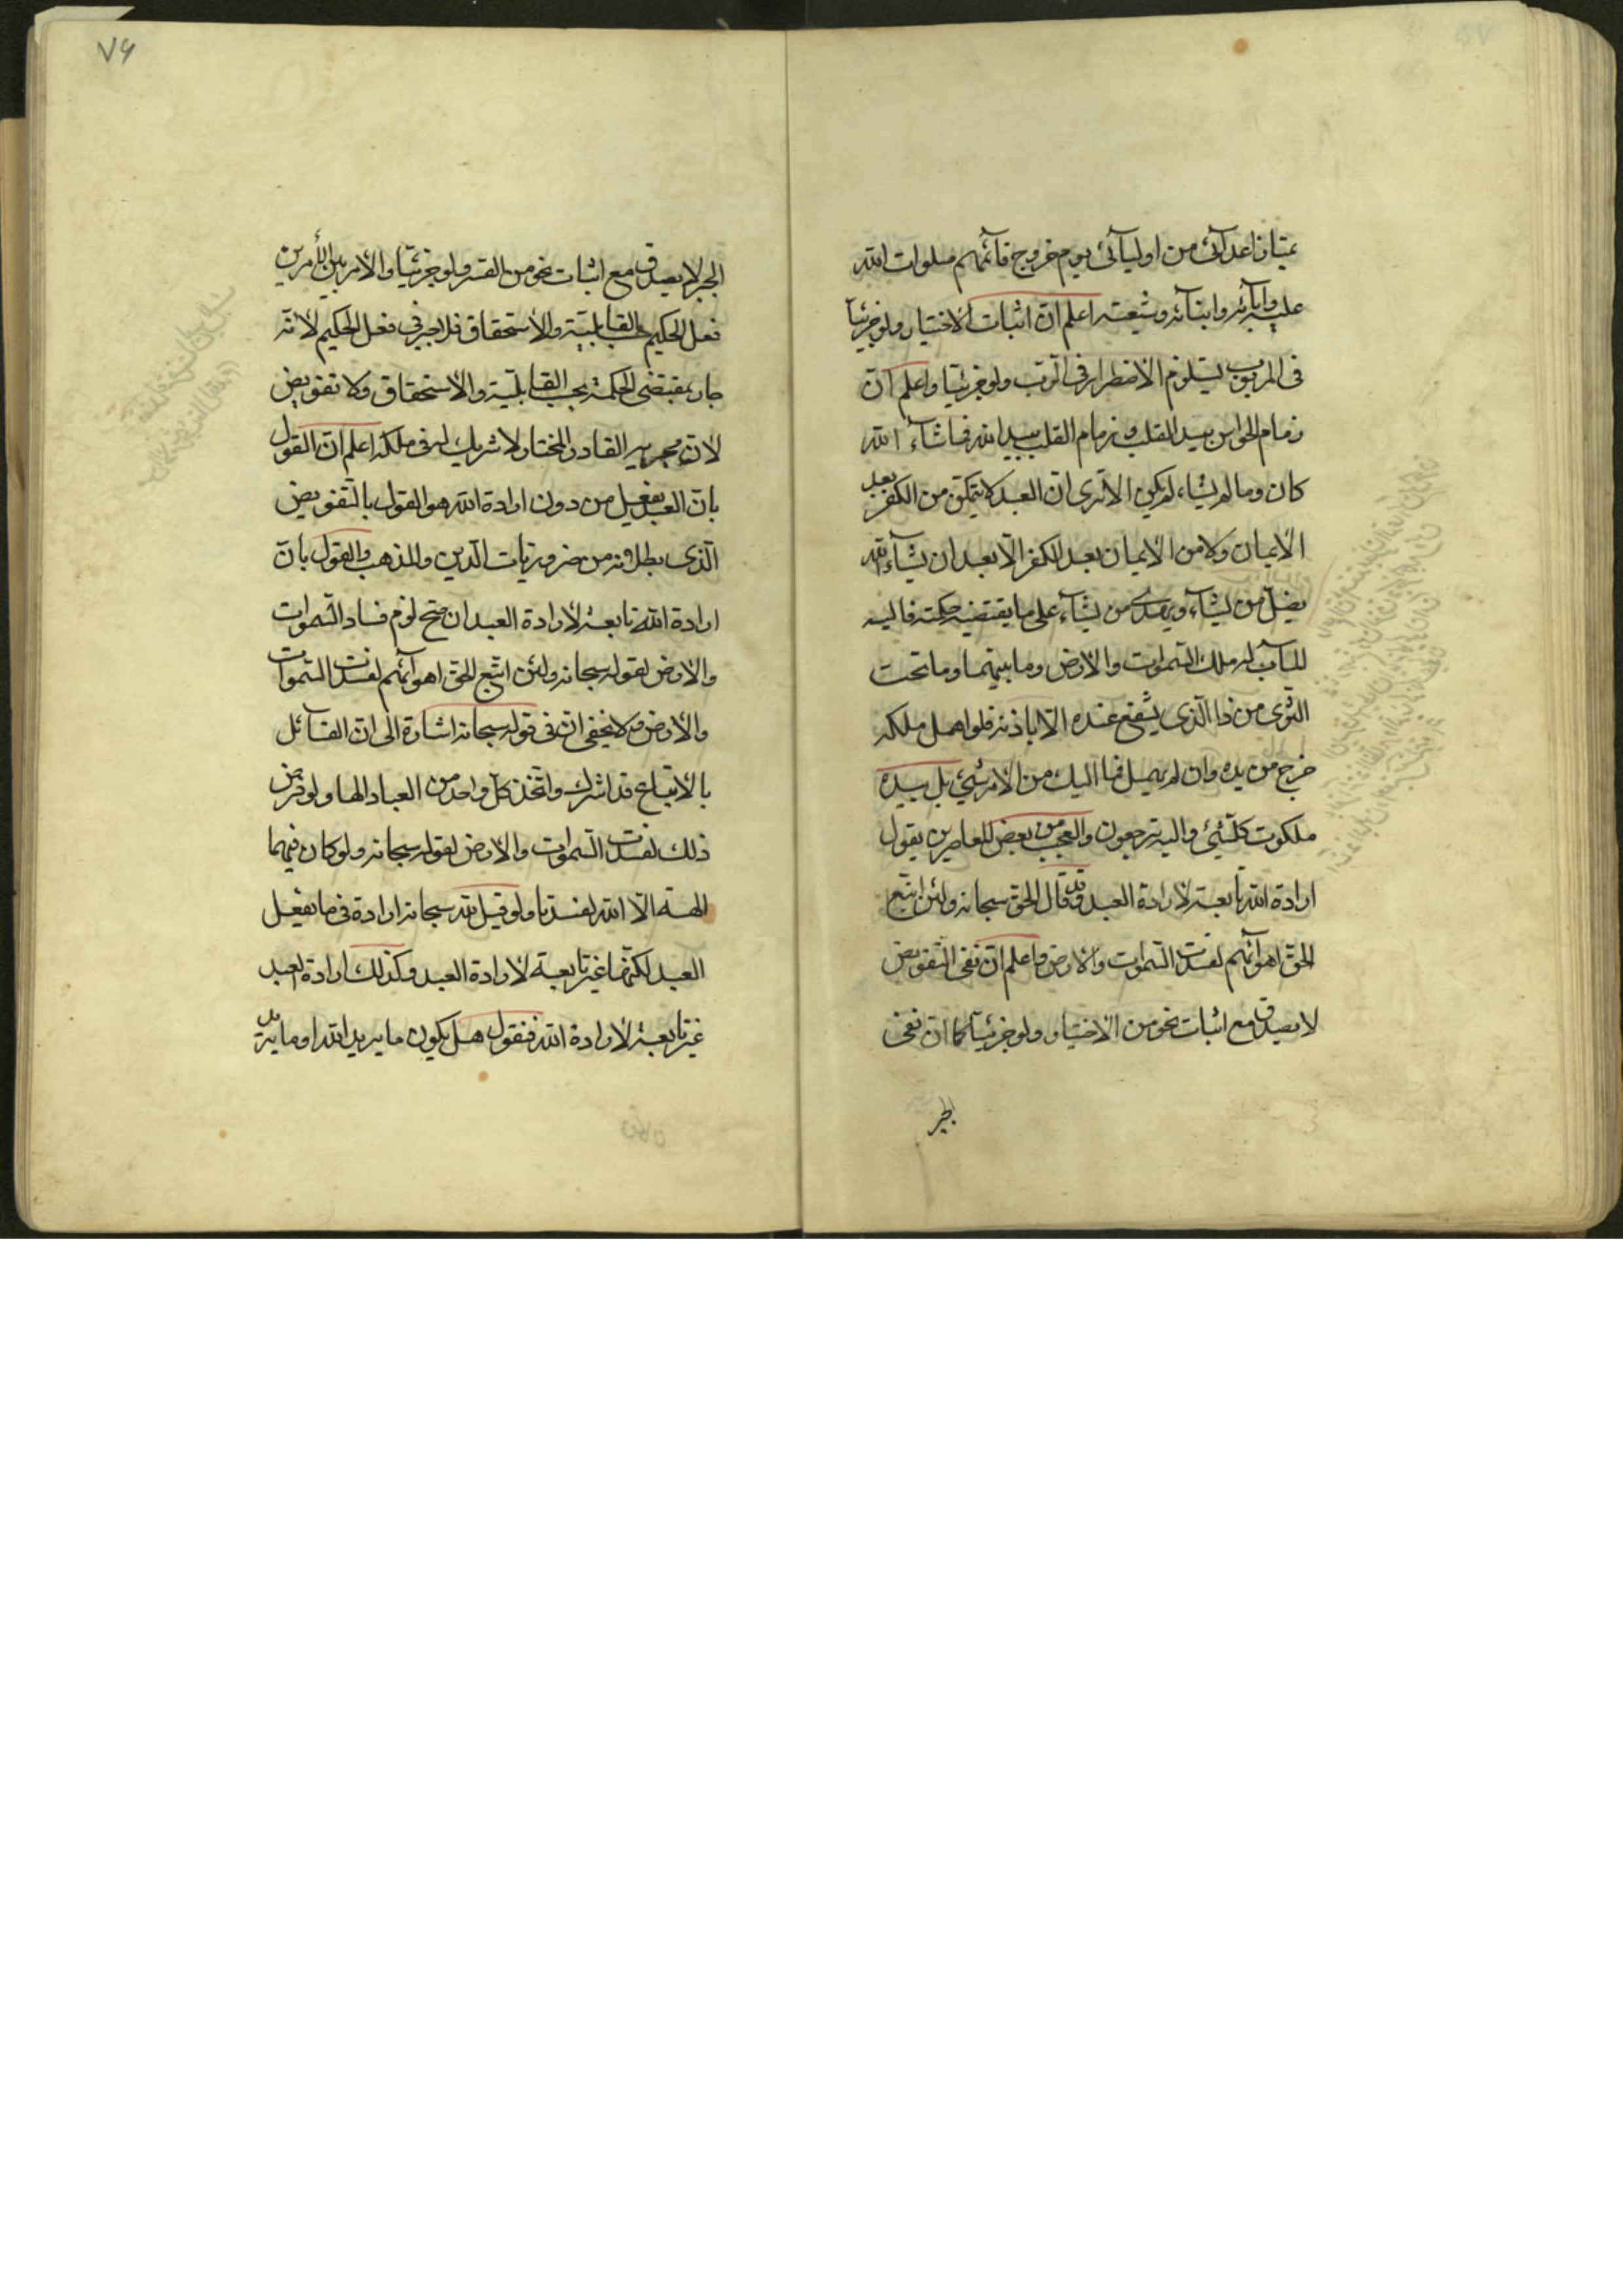 يمتاز اعدائى من اوليآئى يوم خروج قآئمهم صلوات الله
عليه وابآئه وابنآئه وشيعته اعلم ان اثبات الاختيار ولو جزئيا
فى المربوب يستلزم الاضطرار فى الرب ولو جزئيا واعلم ان
زمام الحواس بيد القلب وزمام القلب بيد الله فما شآء الله
كان وما لم يشاء لم يكن الا ترى ان العبد لا يتمكن من الكفر بعد
الايمان ولا من الايمان بعد الكفر الا بعد ان يشآء الله
يضل من يشآء ويهدى من يشآء على ما يقتضيه حكمته فاليه
المآب له ملك السموات والارض وما بينهما وما تحت
الثرى من ذا الذى يشفع عنده الا باذنه فلو اهمل ملكه
خرج من يده وان لم يهمل فما اليك من الامر شىء بل بيده
ملكوت كلشىء واليه ترجعون والعجب من بعض المعاصرين يقول
ارادة الله تابعة لارادة العبد وقد قال الحق سبحانه ولئن اتبع
الحق اهوآئهم لفسدت السموات والارض واعلم ان نفى التفويض
لا يصدق مع اثبات نحو من الاختيار ولو جزئيا كما ان نفى
الجبر
٧۶
الجبر لا يصدق مع اثبات نحو من القسر ولو جزئيا والامر بين الامرين
فعل الحكيم بحسب القابلية والاستحقاق فلا جبر فى فعل الحكيم لانه
جار بمقتضى الحكمة بحسب القابلية والاستحقاق ولا تفويض
لان مجريه القادر المختار لا شريك له فى ملكه اعلم ان القول
بان العبد يفعل من دون ارادة الله هو القول بالتفويض
الذى بطلانه من ضروريات الدين والمذهب والقول بان
ارادة الله تابعة لارادة العبد ان صح لزم فساد السموات
والارض لقوله سبحانه ولئن اتبع الحق اهوآئهم لفسدت السموات
والارض ولا يخفى ان فى قوله سبحانه اشارة الى ان القآئل
بالاتباع قد اشرك واتخذ كل واحد من العباد الها ولو فرض
ذلك لفسدت السموات والارض لقوله سبحانه ولو كان فيهما
الهة الا الله لفسدتا ولو قيل لله سبحانه ارادة فى ما يفعل
العبد لكنها غير تابعة لارادة العبد وكذلك ارادة العبد
غير تابعة لارادة الله فنقول هل يكون ما يريد الله او ما يريد